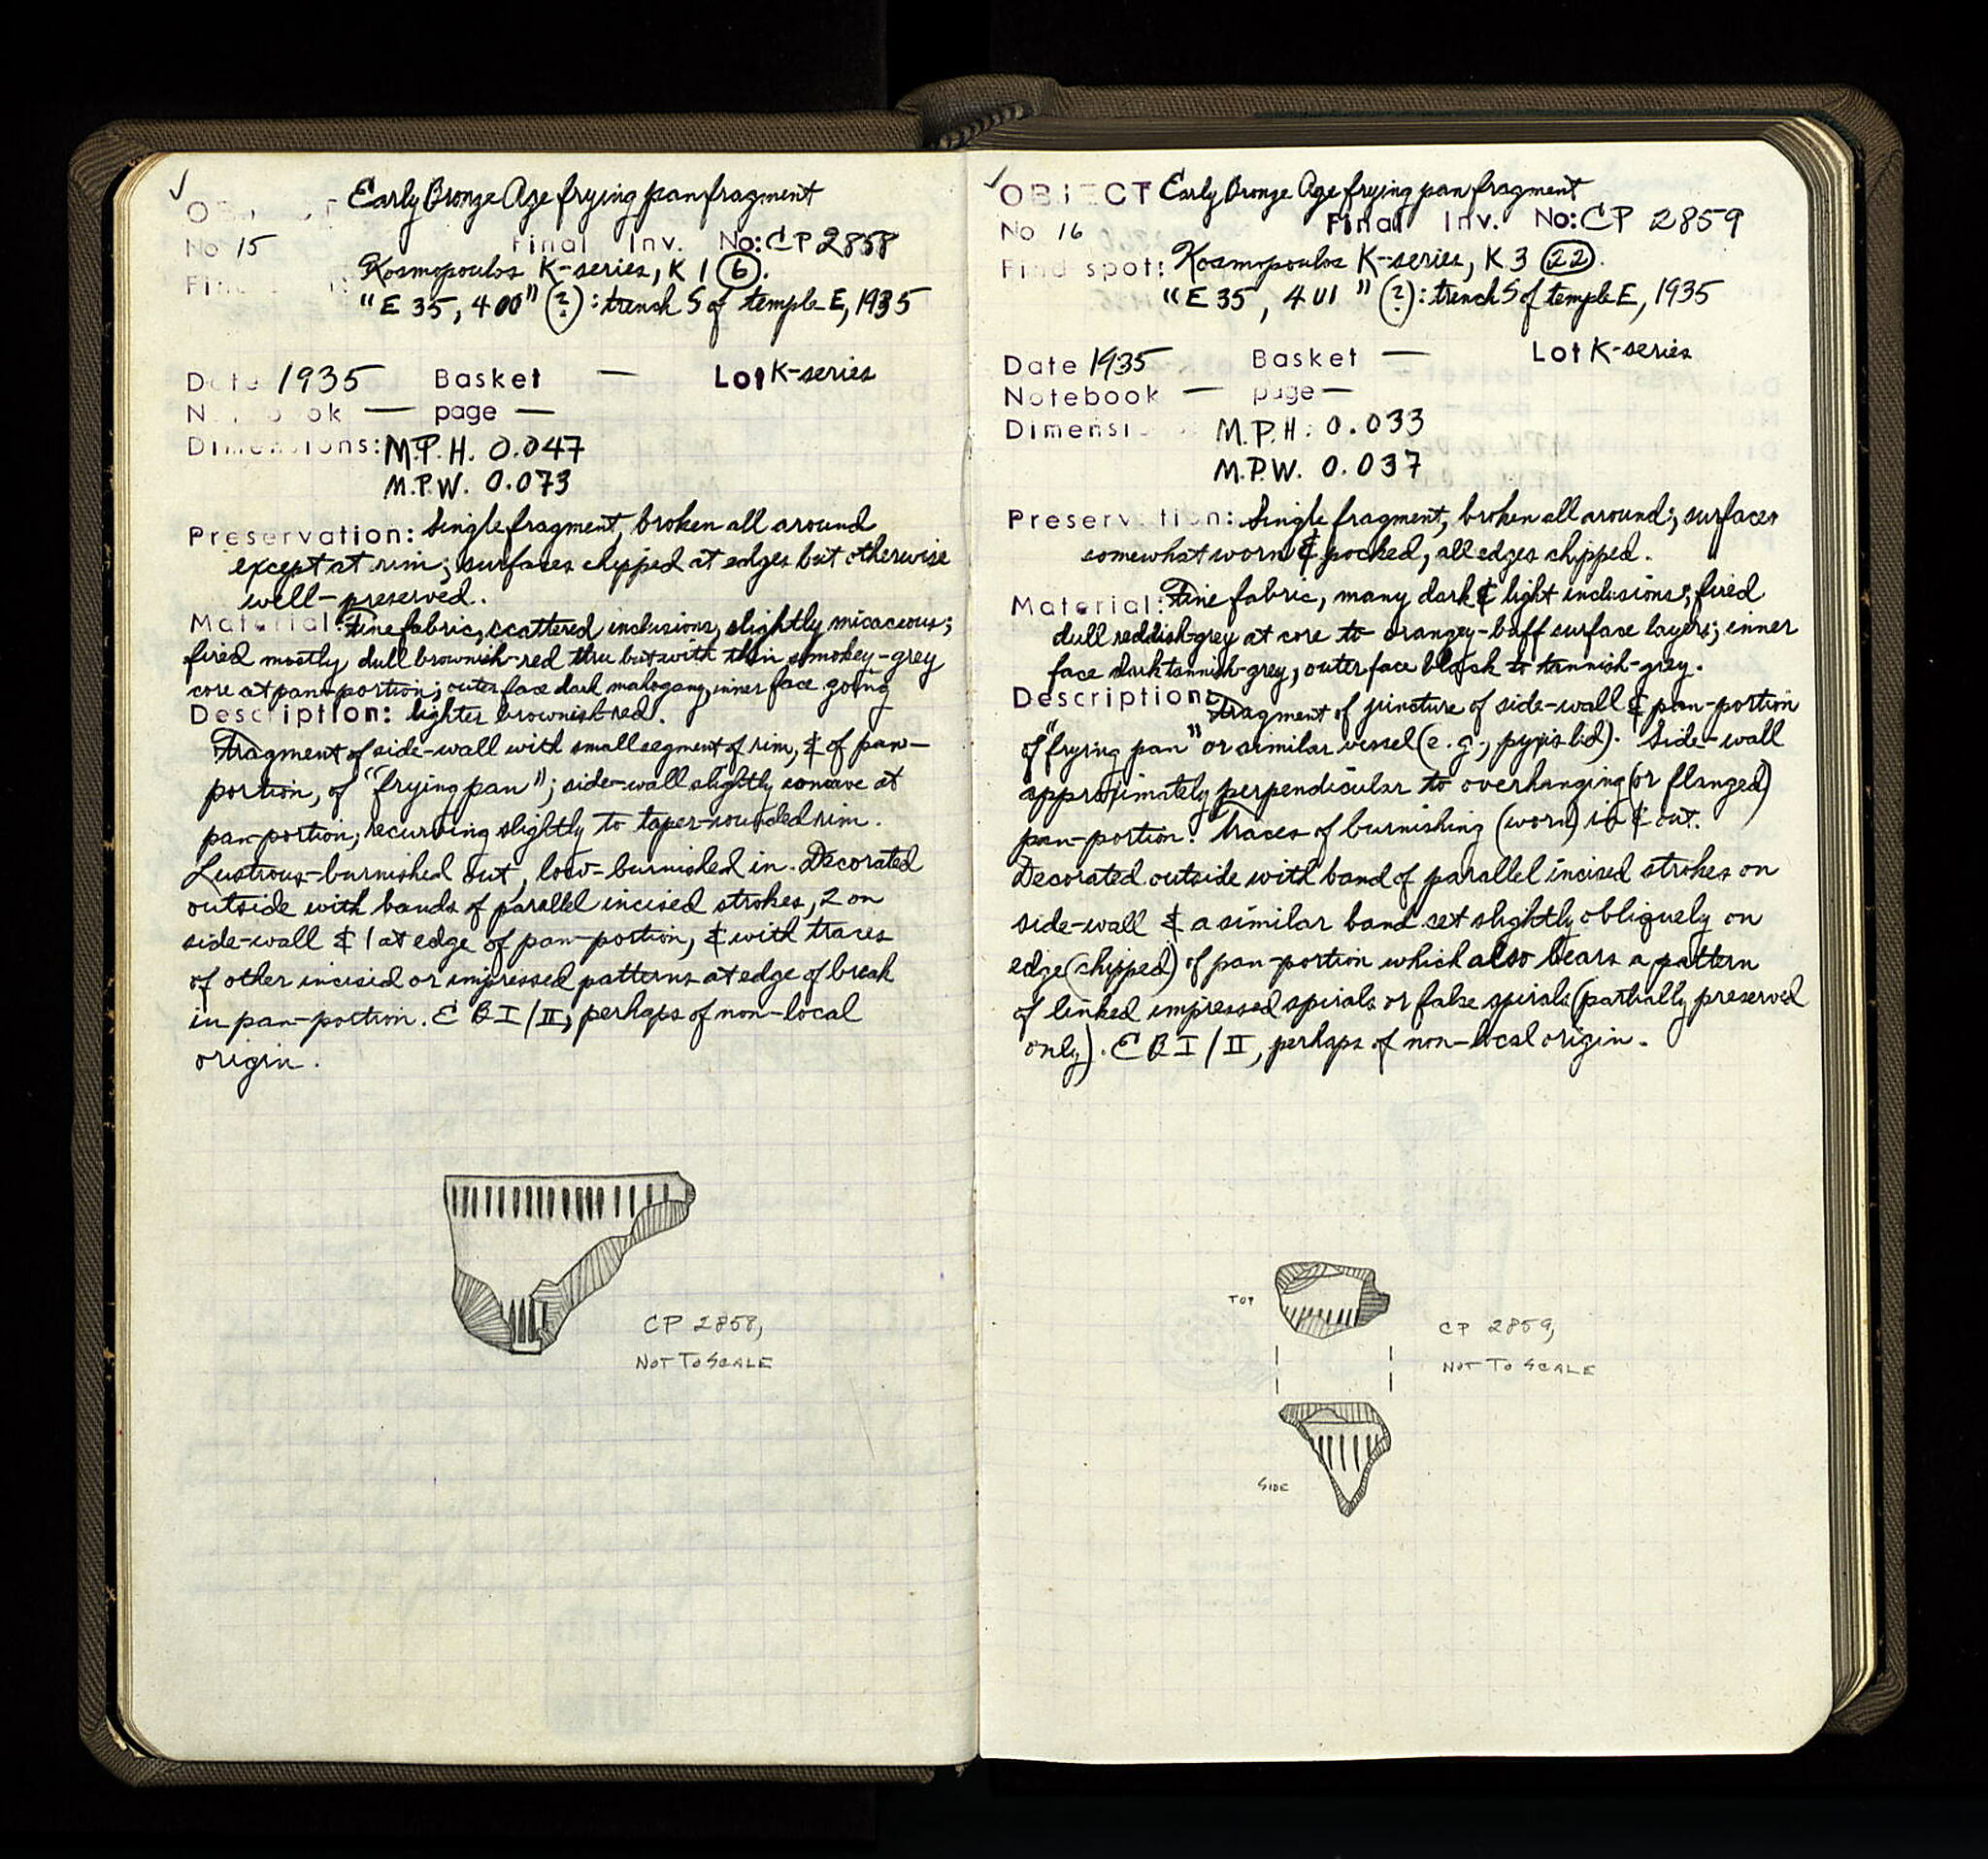 ✓ OBJECT Early Bronze Age frying pan fragment
No 15 Final Inv. No: CP 2858
Find spot: Kosmopoulos K-series, K 1 (6).
"E 35, 400" (?): trench S of temple E, 1935
Date 1935 Basket — Lot K-series
Notebook — page —
Dimensions: M.P.H. 0.047
M.P.W. 0.073
Preservation: Single fragment, broken all around
except at rim; surfaces chipped at edges but otherwise
well-preserved.
Material: Fine fabric, scattered inclusions, slightly micaceous;
fired mostly dull brownish-red thru but with thin smokey-grey
core at pan-portion; outer face dark mahogany, inner face going
Description: lighter brownish-red.
Fragment of side-wall with small segment of rim, & of pan-
portion, of "frying pan"; side-wall slightly concave at
pan-portion, recurving slightly to taper-rounded rim.
Lustrous-burnished out, low-burnished in. Decorated
outside with bands of parallel incised strokes, 2 on
side-wall & 1 at edge of pan-portion, & with traces
of other incised or impressed patterns at edge of break
in pan-portion. EB I/II, perhaps of non-local
origin.
CP 2858,
NOT TO SCALE
✓ OBJECT Early Bronze Age frying pan fragment
No 16 Final Inv. No: CP 2859
Find spot: Kosmopoulos K-series, K 3 (22).
"E 35, 401" (?): trench S of temple E, 1935
Date 1935 Basket — Lot K-series
Notebook — page —
Dimensions: M.P.H. 0.033
M.P.W. 0.037
Preservation: Single fragment, broken all around; surfaces
somewhat worn & pocked, all edges chipped.
Material: Fine fabric, many dark & light inclusions; fired
dull reddish-grey at core to orangey-buff surface layers; inner
face dark tannish-grey, outer face black to tannish-grey.
Description: Fragment of juncture of side-wall & pan-portion
of "frying pan" or similar vessel (e.g., pyxis lid). Side-wall
approximately perpendicular to overhanging (or flanged)
pan-portion. Traces of burnishing (worn) in & out.
Decorated outside with band of parallel incised strokes on
side-wall & a similar band set slightly obliquely on
edge (chipped) of pan-portion which also bears a pattern
of linked impressed spirals or false spirals (partially preserved
only). EB I/II, perhaps of non-local origin.
TOP
CP 2859,
NOT TO SCALE
SIDE